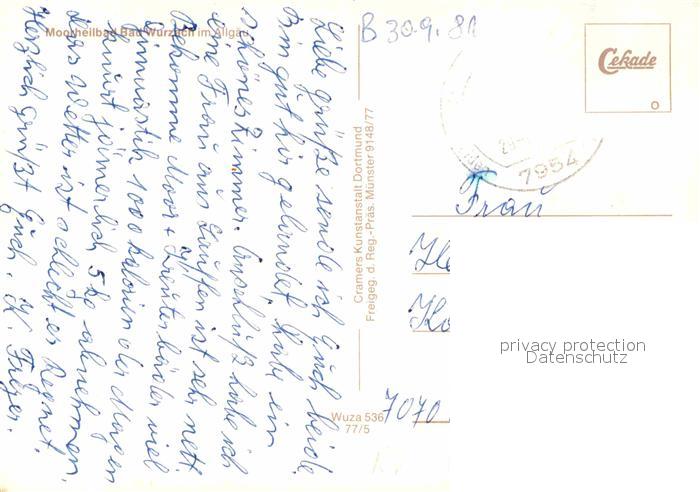 Moorheilbad Bad Wurzach im Allgäu
B 30.9.81
Cekade
7954
Liebe Grüße sende ich Euch beide
Bin gut hir gelandet habe ein
schönes Zimmer. Anschluß habe ich
eine Frau aus Lauffen ist sehr nett.
Bekomme Moor + Kreuterbäder viel
Gimnastik 1000 Kalorien der Magen
knurt jämerlich 5 kg abnehmen.
das Wetter ist schlecht es Regnet.
Herzlich grüßt Euch.
Cramers Kunstanstalt Dortmund
Freigeg. d. Reg.-Präs. Münster 9148/77
Frau
7070
Wuza 536
77/5
privacy protection
Datenschutz